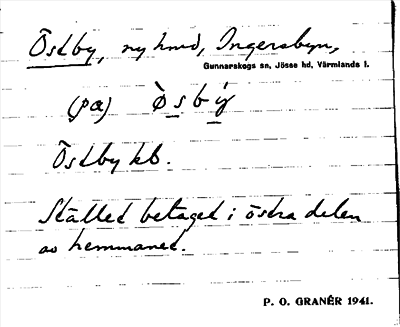 Östby, ny hmd, Ingersbyn,
Gunnarskogs sn, Jösse hd, Värmlands l.
(pa) ò̱sbý̱
Östby kb.
Stället betaget i östra delen
av hemmanet.
P. O. GRANÉR 1941.